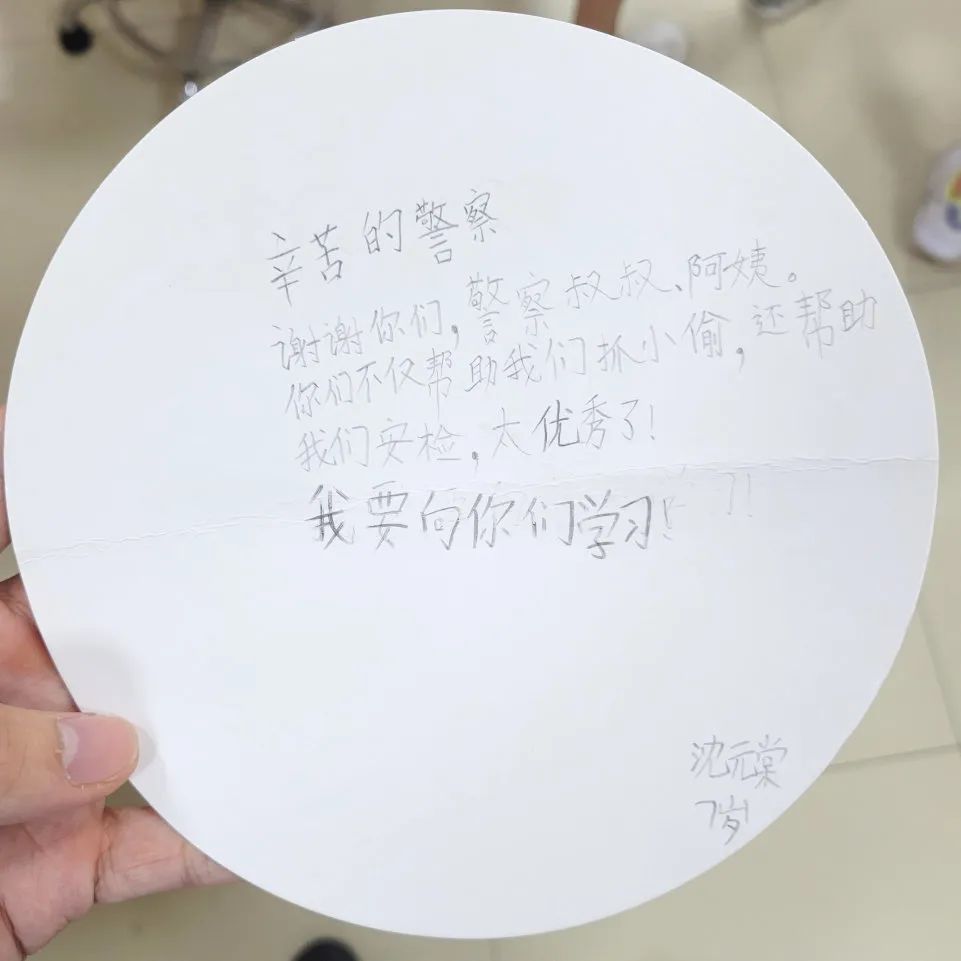 辛苦的警察
谢谢你们，警察叔叔、阿姨。
你们不仅帮助我们抓小偷，还帮助
我们安检，太优秀了！
我要向你们学习！
沈元棠
7岁